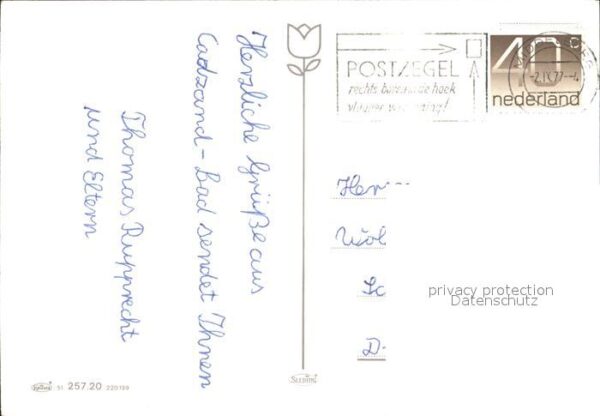 Herzliche Grüße aus
Cadzand-Bad sendet Ihnen
Thomas Rupprecht
und Eltern
POSTZEGEL
rechts bovenaan de hoek
-2.IX.77-
40c
nederland
Her
Wol
Sc
D.
privacy protection
Datenschutz
51 257.20 220199